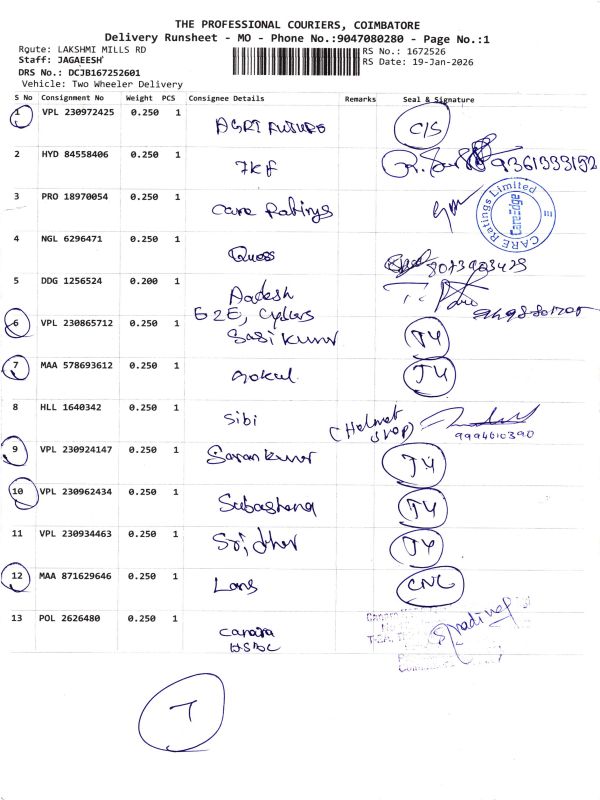 THE PROFESSIONAL COURIERS, COIMBATORE
Delivery Runsheet - MO - Phone No.:9047080280 - Page No.:1
Route: LAKSHMI MILLS RD
RS No.: 1672526
Staff: JAGAEESH
RS Date: 19-Jan-2026
DRS No.: DCJB167252601
Vehicle: Two Wheeler Delivery
S No Consignment No Weight PCS Consignee Details Remarks Seal & Signature
1 VPL 230972425 0.250 1 AGRI FUTURE C/S
2 HYD 84558406 0.250 1 7KF
3 PRO 18970054 0.250 1 Care Ratings
CARE Ratings Limited
4 NGL 6296471 0.250 1 Quess
5 DDG 1256524 0.200 1 Aadesh
E2E, Cyclers
6 VPL 230865712 0.250 1 Sasi Kumar T4
7 MAA 578693612 0.250 1 Gokul T4
8 HLL 1640342 0.250 1 Sibi (Helmet shop)
9994610390
9 VPL 230924147 0.250 1 Saran Kumar T4
10 VPL 230962434 0.250 1 Subashena T4
11 VPL 230934463 0.250 1 Sri, dher T4
12 MAA 871629646 0.250 1 Lans CNL
13 POL 2626480 0.250 1 Canara
HSBC
7